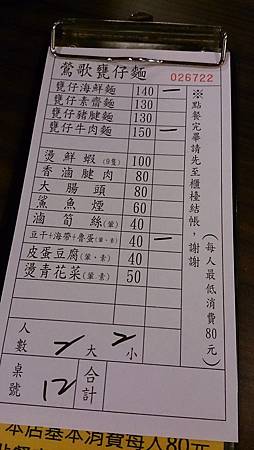 鶯歌甕仔麵 026722
甕仔海鮮麵 140 一
甕仔素齋麵 130
甕仔豬腱麵 130
甕仔牛肉麵 150 一
燙鮮蝦(9隻) 100
香滷腱肉 80
大腸頭 80
鯊魚煙 60
滷筍絲(葷) 40
豆干+海帶+魯蛋(葷、素) 40 一
皮蛋豆腐(葷、素) 40
燙青花菜(葷、素) 50
人數 大 小
桌號 12 合計
※點餐完畢請先至櫃檯結帳，謝謝
(每人最低消費80元)
本店基本消費每人80元